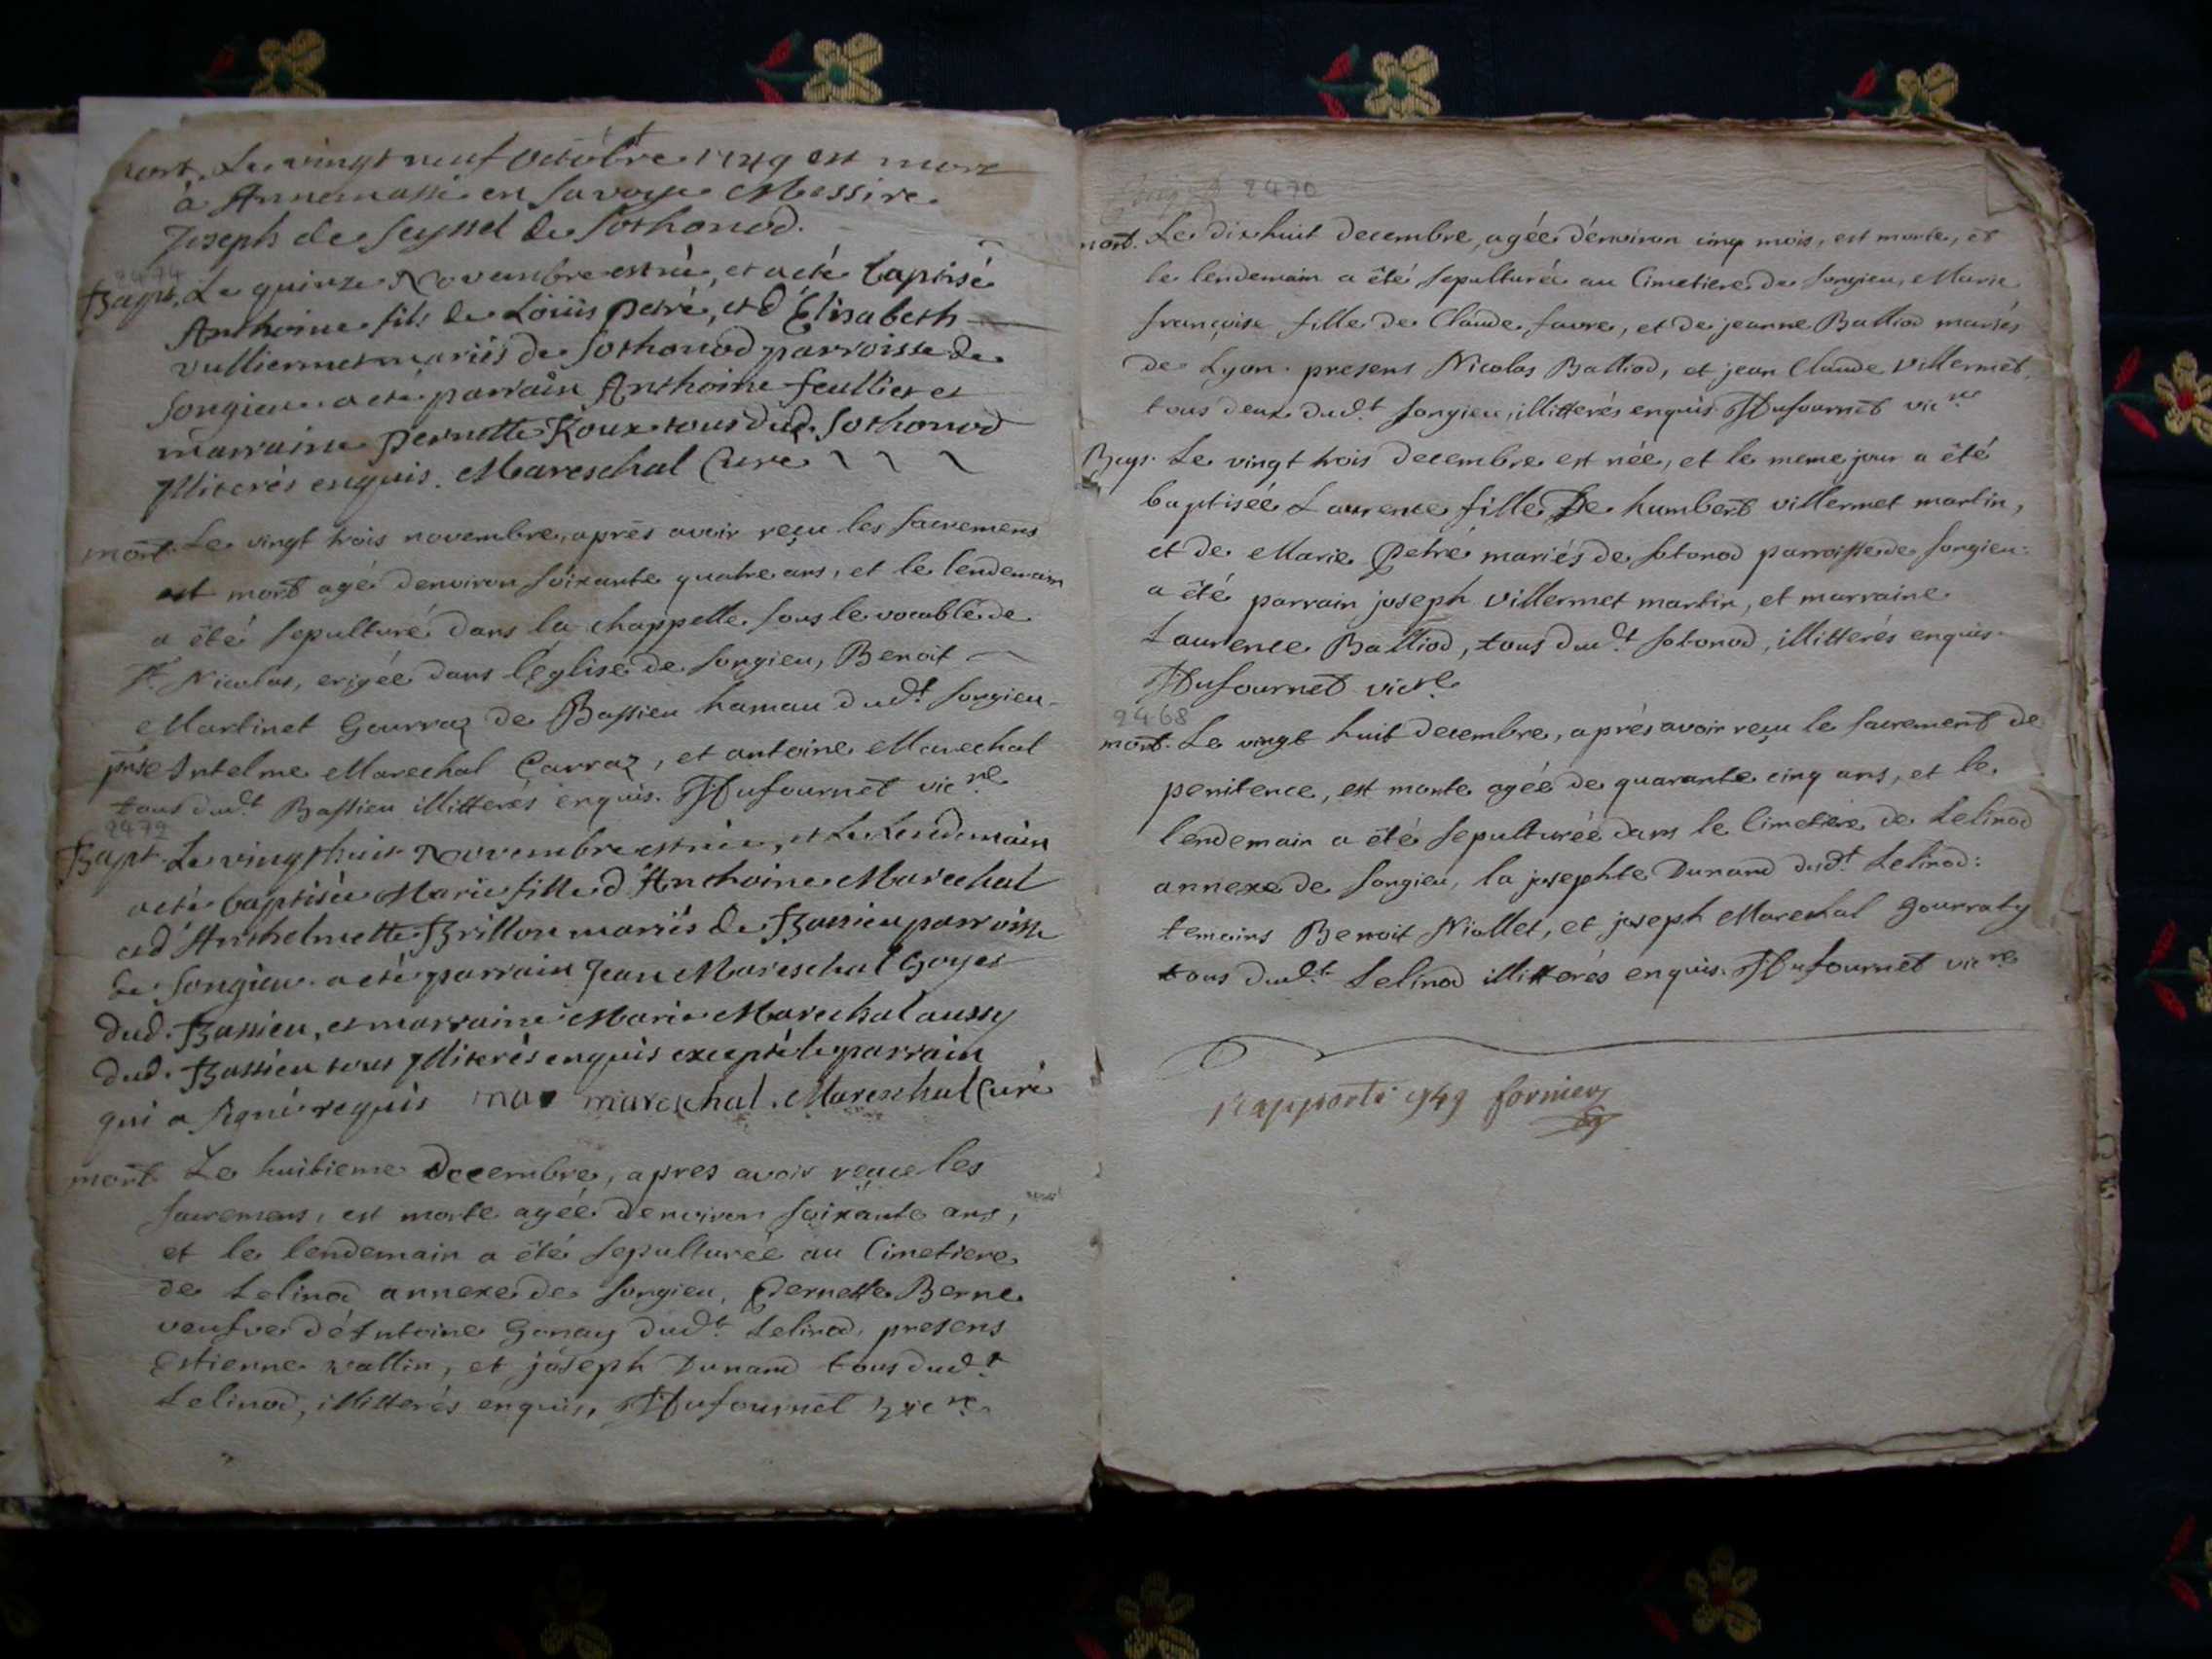 mort. Le vingt neuf Octobre 1749 est mort
à Annemasse en Savoye Messire
Joseph de Seyssel de Sothonod.
Bapt. Le quinze Novembre est né, et a eté baptisé
Anthoine fils de Loüis petré, et d'Elisabeth
vulliermet mariés de Sothonod parroisse de
Songieu. a eté parrain Anthoine feulliet et
marraine pernette Roux tous dud. Sothonod
Jlliterés enquis. Mareschal Curé
mort. Le vingt trois novembre, aprés avoir reçu les sacremens
est mort agé denviron soixante quatre ans, et le lendemain
a été sepulturé dans la chappelle sous le vocable de
St. Nicolas, erigée dans l'église de Songieu, Benoit
Martinet Gourraz de Bassieu hamau dud.t Songieu
pnse Antelme Marechal Carraz, et antoine Marechal
tous dud.t Bassieu illitterés enquis. Dufournet vic.re
2472
Bapt. Le vingt huit Novembre est née, et Le Lendemain
a eté baptisée Marie fille d'Anthoine Marechal
et d'Anthelmette Brillon mariés de Bassieu parroisse
de Songieu. a eté parrain Jean Mareschal Goyet
dud. Bassieu, et marraine Marie Marechal aussy
dud. Bassieu tous Jlliterés enquis excepté le parrain
qui a signé requis mareschal. Mareschal Curé
mort Le huitieme Decembre, apres avoir reçue les
sacremens, est morte agée denviron soixante ans,
et le lendemain a été sepulturée au Cimetiere
de Lelinod annexe de Songieu, Pernette Berne
veufve d'Antoine Gonay dud.t Lelinod, presens
Estienne vallin, et joseph Dunand tous dud.t
Lelinod, illitterés enquis, Dufournet vic.re
2470
mort. Le dix huit decembre, agée d'environ cinq mois, est morte, et
le lendemain a été sepulturée au Cimetiere de Songieu, Marie
françoise fille de Claude favre, et de jeanne Balliod mariés
de Lyon. presens Nicolas Balliod, et jean Claude Villermet,
tous deux dud.t Songieu, illitterés enquis. Dufournet vic.re
Bap. Le vingt trois decembre est née, et le meme jour a été
baptisée Laurence fille De humbert villermet martin,
et de Marie Petré mariés de Sotonod parroisse de Songieu.
a été parrain joseph villermet martin, et marraine
Laurence Balliod, tous dud.t Sotonod, illitterés enquis.
Dufournet vicre
2468
mort. Le vingt huit decembre, aprés avoir reçu le sacrement de
penitence, est morte agée de quarante cinq ans, et le
lendemain a été sepulturée dans le Cimetiere de Lelinod
annexe de Songieu, la josephte Dunand dud.t Lelinod:
temoins Benoit Niollet, et joseph Marechal gourraty
tous dud.t Lelinod illitterés enquis. Dufournet vicre
Rapporté 1749 fornier